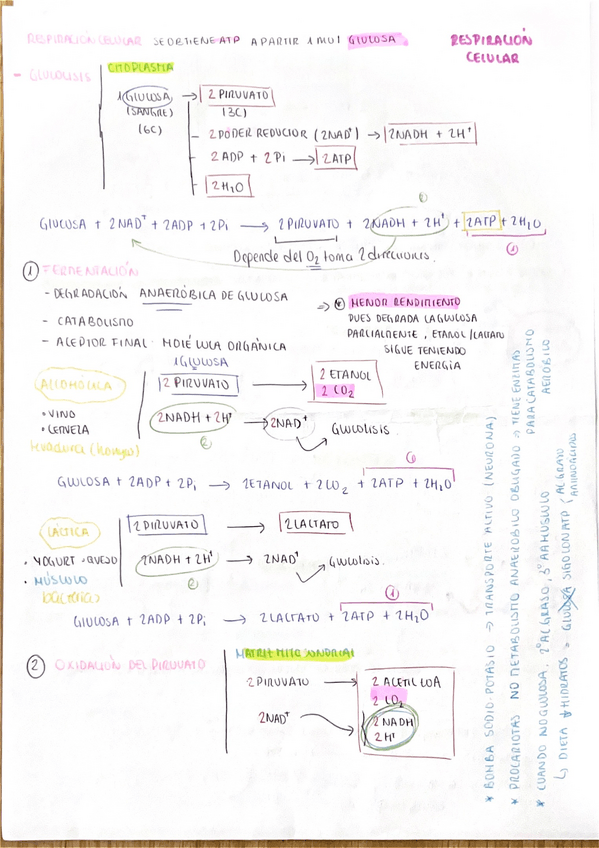 RESPIRACIÓN CELULAR SE OBTIENE ATP A PARTIR 1 MOL GLUCOSA
RESPIRACIÓN
CELULAR
- GLUCOLISIS
CITOPLASMA
1 GLUCOSA → 2 PIRUVATO
(SANGRE) (3C)
(6C)
2 PODER REDUCTOR (2NAD⁺) → 2NADH + 2H⁺
2 ADP + 2 Pi → 2 ATP
2 H₂O
②
GLUCOSA + 2NAD⁺ + 2ADP + 2Pi → 2 PIRUVATO + 2NADH + 2H⁺ + 2ATP + 2H₂O
①
Depende del O₂ toma 2 direcciones.
① FERMENTACIÓN
- DEGRADACIÓN ANAERÓBICA DE GLUCOSA
- CATABOLISMO
- ACEPTOR FINAL: MOLÉCULA ORGÁNICA
⇒ * MENOR RENDIMIENTO
PUES DEGRADA LA GLUCOSA
PARCIALMENTE, ETANOL/LACTATO
SIGUE TENIENDO
ENERGÍA
ALCOHÓLICA
• VINO
• CERVEZA
levadura (hongos)
1 GLUCOSA
2 PIRUVATO → 2 ETANOL
2 CO₂
2NADH + 2H⁺ → 2NAD⁺
② → Glucolisis
①
GLUCOSA + 2ADP + 2Pi → 2ETANOL + 2CO₂ + 2ATP + 2H₂O
LÁCTICA
• YOGURT, QUESO
• MÚSCULO
bacterias
2 PIRUVATO → 2 LACTATO
2NADH + 2H⁺ → 2NAD⁺
② → Glucolisis.
①
GLUCOSA + 2ADP + 2Pi → 2LACTATO + 2ATP + 2H₂O
② OXIDACIÓN DEL PIRUVATO
MATRIZ MITOCONDRIAL
2 PIRUVATO → 2 ACETIL COA
2 CO₂
2NAD⁺ → 2 NADH
2 H⁺
* BOMBA SODIO-POTASIO → TRANSPORTE ACTIVO (NEURONA)
* PROCARIOTAS NO METABOLISMO ANAEROBICO OBLIGADO → TIENE ENZIMAS
PARA CATABOLISMO
AEROBICO
* CUANDO NO GLUCOSA: 2º AC GRASO, 3º AA MÚSCULO
↳ DIETA ↓ HIDRATOS → GLUCOSA SIGO CON ATP
AC GRASO
AMINOÁCIDO